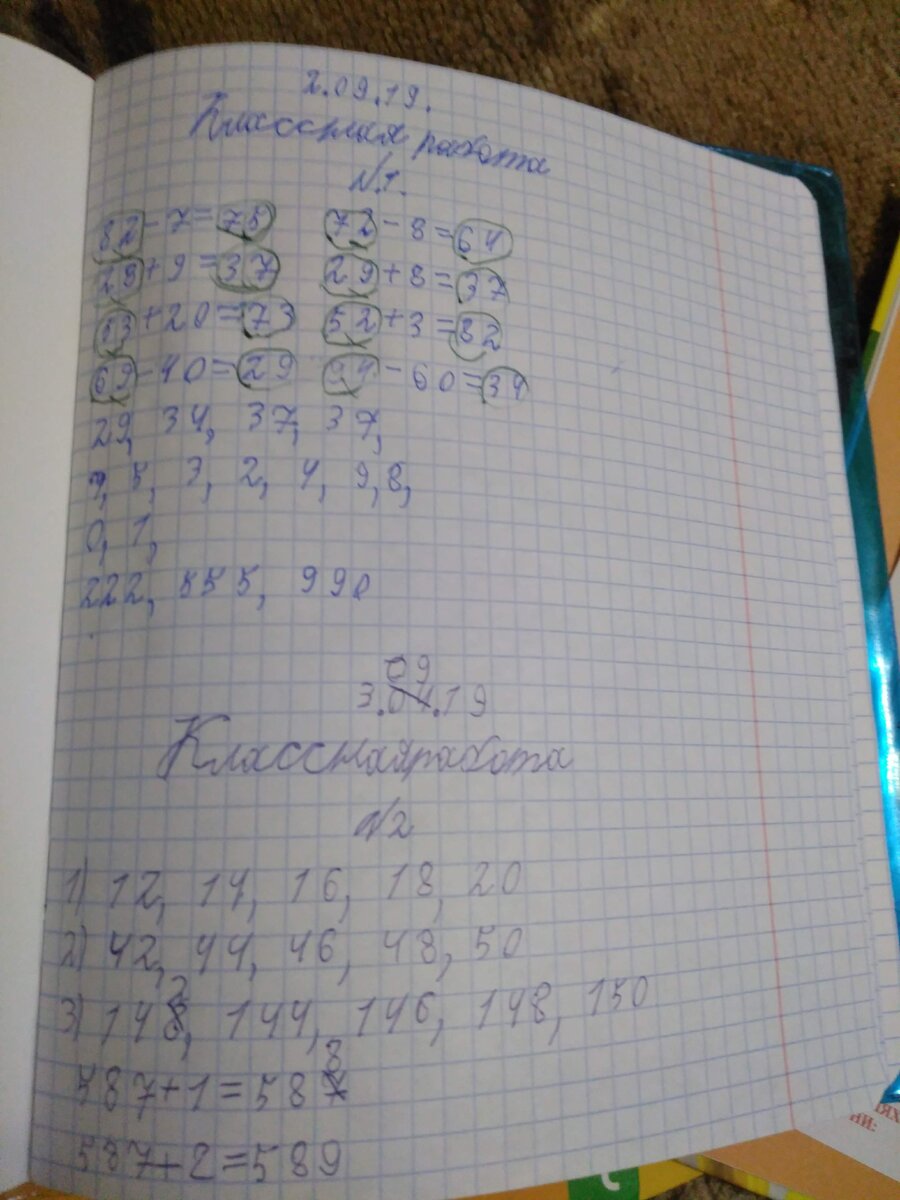 2.09.19.
Классная работа
№1.
82-7=75 72-8=64
28+9=37 29+8=37
53+20=73 52+3=82
69-40=29 94-60=34
29, 34, 37, 37,
7, 5, 3, 2, 4, 9, 8,
0, 1,
222, 555, 990
09
3.04.19
Классная работа
№2
1) 12, 14, 16, 18, 20
2) 42, 44, 46, 48, 50
3) 142, 144, 146, 148, 150
587+1=588
587+2=589